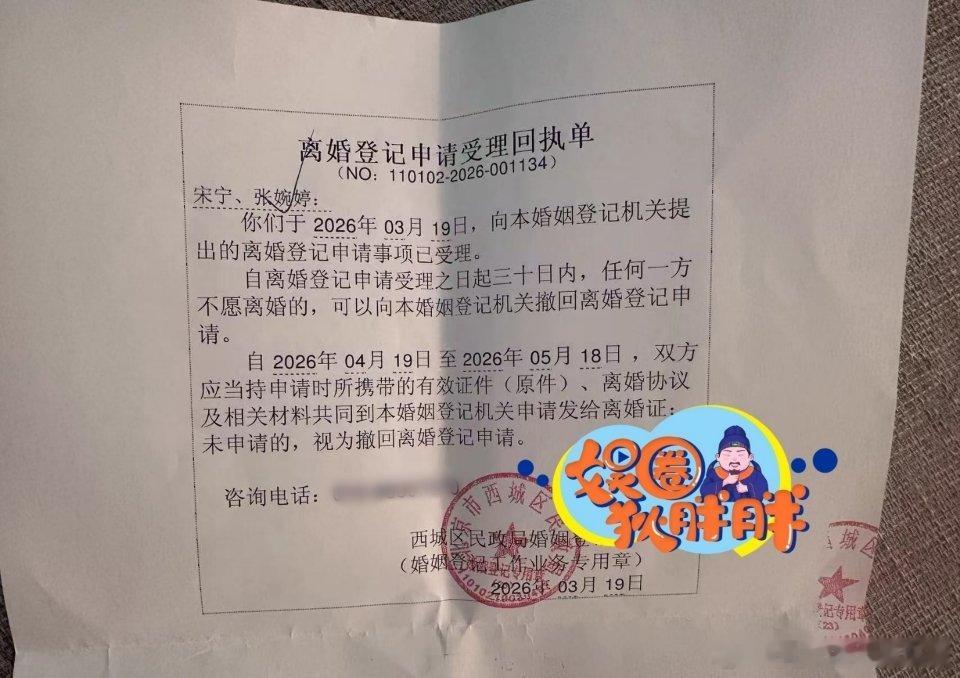 离婚登记申请受理回执单
(NO: 110102-2026-001134)
宋宁、张婉婷:
你们于 2026年 03月 19日,向本婚姻登记机关提
出的离婚登记申请事项已受理。
自离婚登记申请受理之日起三十日内,任何一方
不愿离婚的,可以向本婚姻登记机关撤回离婚登记申
请。
自 2026年 04月 19日 至 2026年 05月 18日 ,双方
应当持申请时所携带的有效证件(原件)、离婚协议
及相关材料共同到本婚姻登记机关申请发给离婚证;
未申请的,视为撤回离婚登记申请。
咨询电话:
西城区民政局婚姻登
(婚姻登记工作业务专用章)
2026年 03月 19日
京市西城区
登记专用章
娱圈
狄胖胖
西城区
登记专用章
(23)